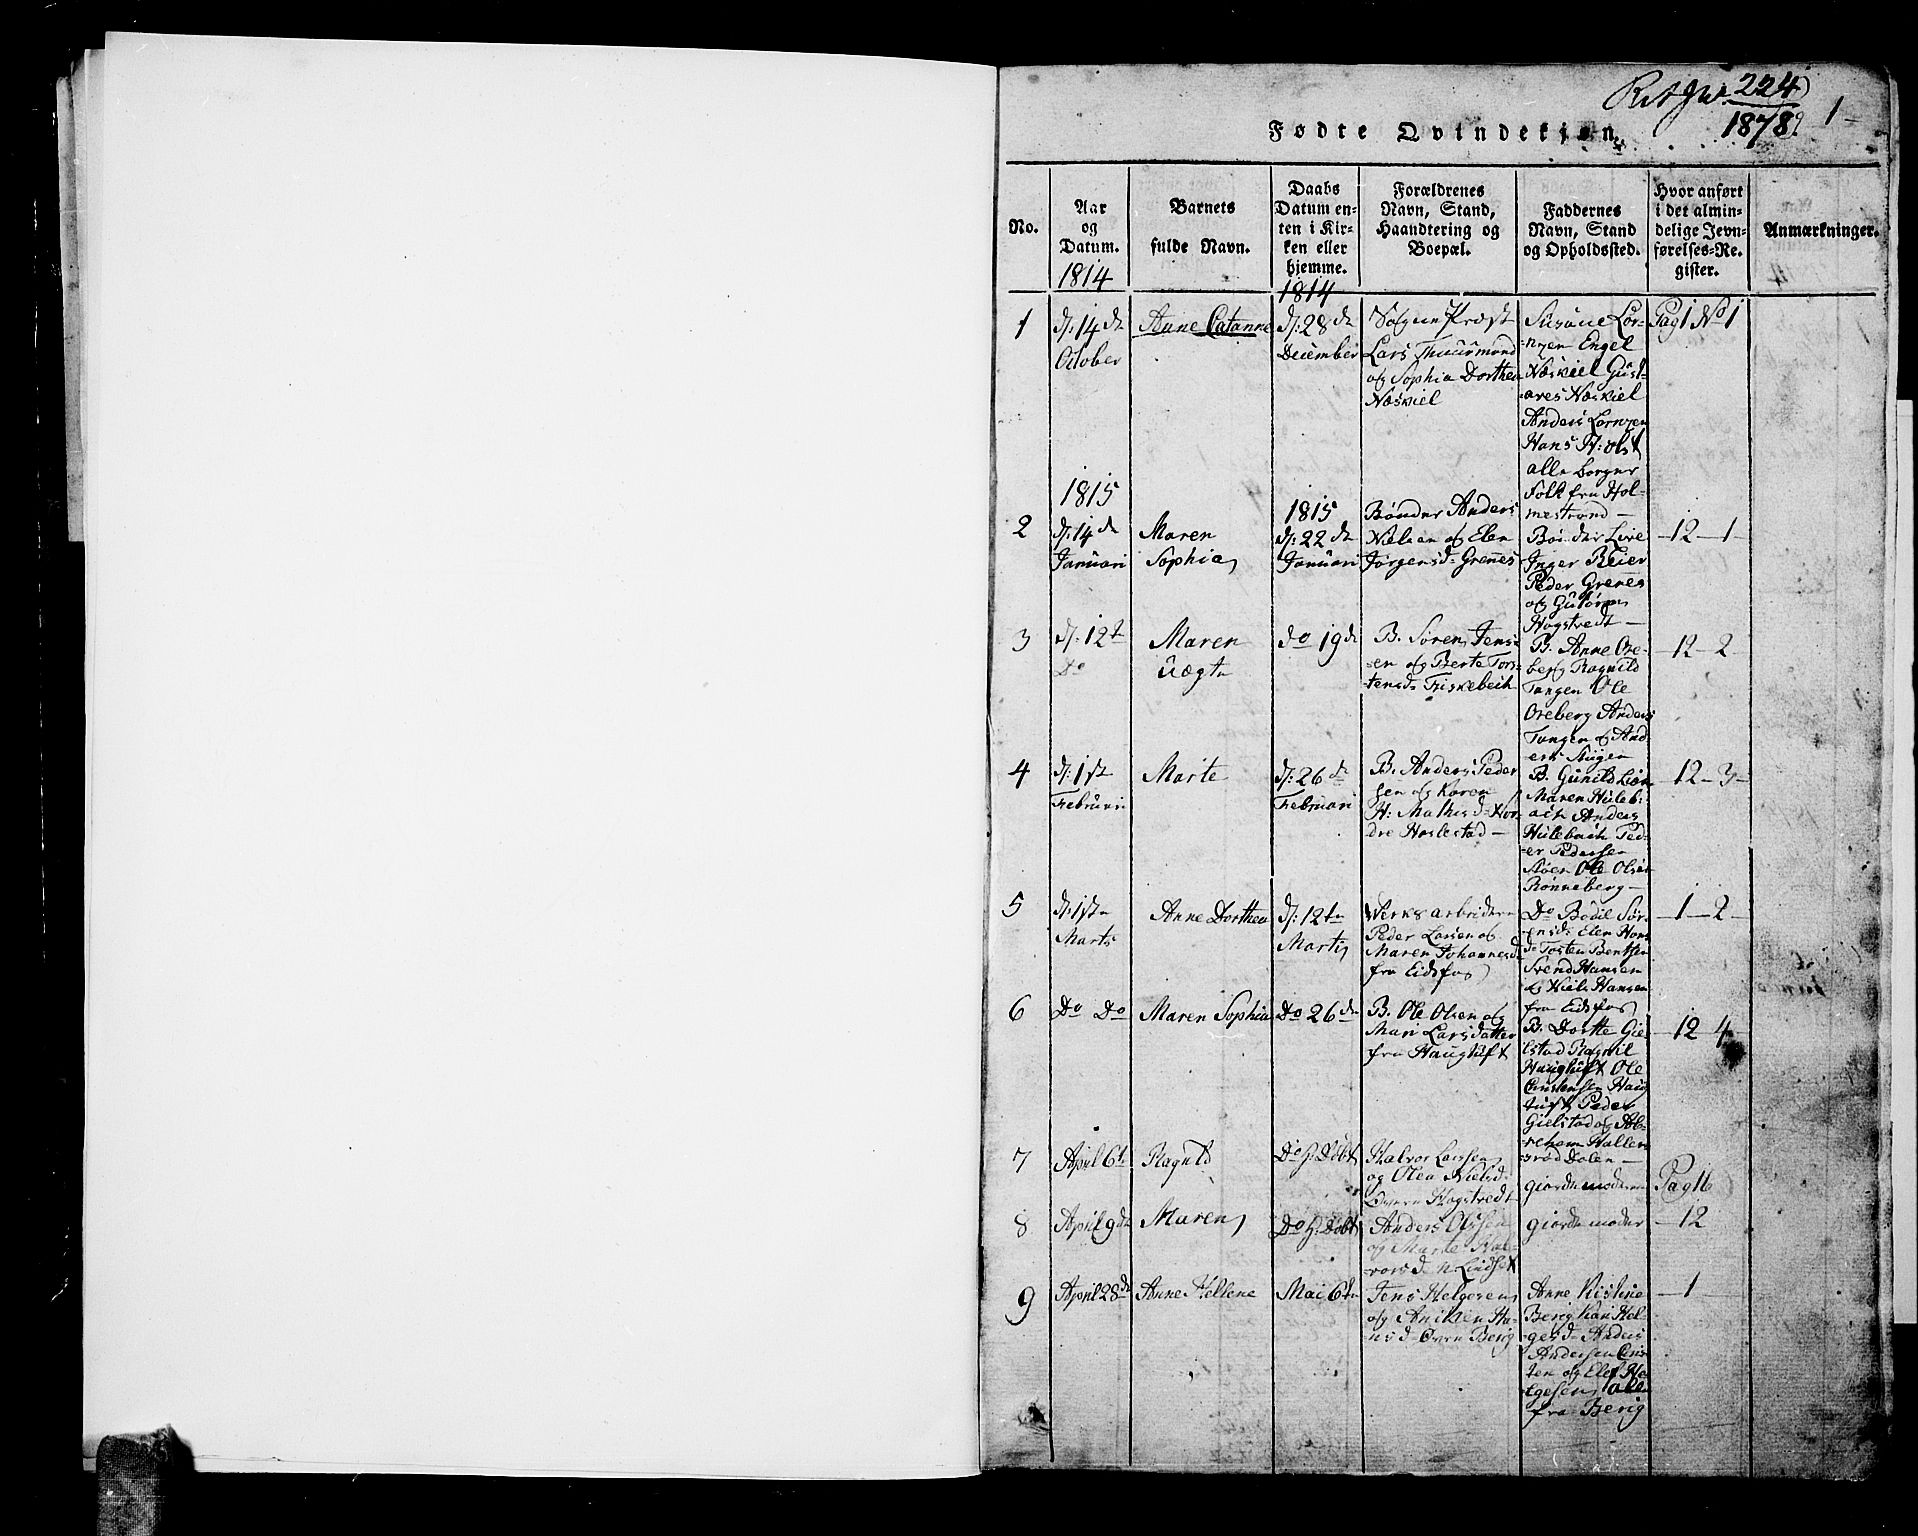 224
1878
1
Fødte Qvindekiøn.
No.
Aar
og
Datum.
1814
Barnets
fulde Navn.
Daabs
Datum en-
ten i Kir-
ken eller
hjemme.
1814
Forældrenes
Navn, Stand,
Haandtering og
Boepæl.
Faddernes
Navn, Stand
og Opholdssted.
Hvor anført
i det almin-
delige Jevn-
førelses-Re-
gister.
Anmærkninger.
1
d: 14 de
October
Anne Catanne
d: 28 de
December
Sogne Præst
Lars Thuurmond
og Sophia Dorthea
Næskiel
Susane Lor-
nzen Engel
Næskiel Gust-
aves Næskiel
Anders Lornzen
Hans H: olst
alle borger
Folk fra Hol-
mestrand -
Pag 1 No 1
1815
2
d: 14 de
Januari
Maren
Sophia
1815
d: 22 de
Januari
Bønder Anders
Nielsen og Elen
Jørgensd- Grenes
Bønder Live
Inger Beier
Peder Grenes
og Gutorm
Hogstredt -
- 12 - 1 -
3
d: 12 t
Do
Maren
do 19 de
B. Søren Jens-
en og Berte Tors-
tensd Fiskebech
B. Anne Ore-
berg Ragnild
Tangen Ole
Oreberg Anders
Tangen og And-
ers
- 12 - 2 -
4
d: 1ste
Februari
Marte
d: 26 de
Februari
B. Anders Peder
sen og Karen
H: Mathisd- Nor-
dre Haslestad -
B. Gunild Lian
Maren Hüleb-
ach Anders
Hülebach Ped-
er Pedersen
Støen Ole Olsen
Rønneberg -
- 12 - 3 -
5
d: 1ste
Marts
Anne Dorthea
d: 12te
Marts
Verks arbeider
Peder Larsen og
Maren Johannesd
fra Eidsfos
Do Bodil Sør-
ensd Elen Hans
d- Tosten Bentsen
Svend Hansen
og Niels Hansen
fra Eidsfos
- 1 - 2 -
6
Do Do
Maren Sophia
Do 26 de
B. Ole Olsen og
Mari Larsdatter
fra Haugtuft
B. Dortte Gie-
lstad Ragnil
Haugtuft Ole
Christensen Haug
tuft Peder
Gielstad og Ab-
reham Haller-
srød Dalen -
- 12 4 -
7
April 6te
Ragnild
Do H: Døbt
Halvor Larsen
og Olea Nielsd-
Øvern Hogstredt
giorde moderen
Pag 16
8
April 9de
Maren
Do H: Døbt
Anders Olssen
og Marte Hal-
vorsd- N Lindset
giorde moder
- 12
9
April 28de
Anne Hellene
Mai 6te
Jens Helgesen
og Aniken Ha-
nsd- Øvre Berig
Anne Kistine
Berig Kari Hel-
gesd- Anders
Andersen Cris-
ten og Elef He-
lgesen alle
fra Berig
- 1